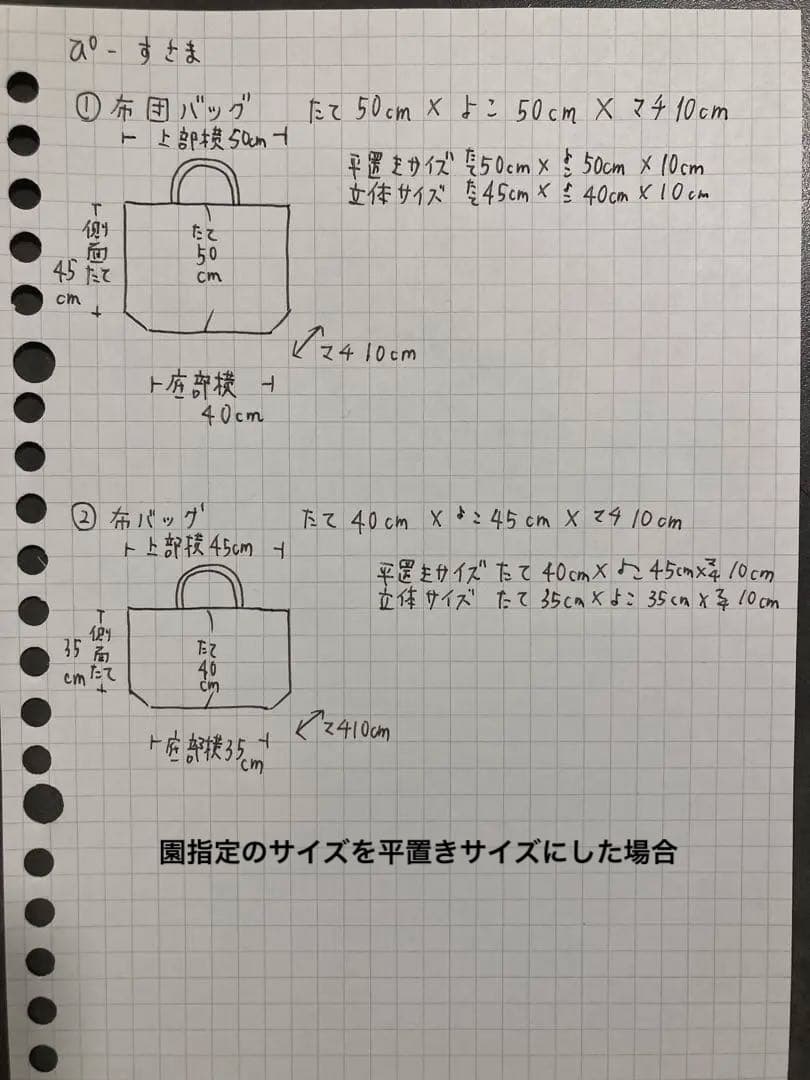 ぴーすさま
① 布団バッグ たて 50cm × よこ 50cm × マチ 10cm
⊢ 上部横50cm ⊣
平置きサイズ たて50cm × よこ 50cm × 10cm
立体サイズ たて45cm × よこ 40cm × 10cm
側面たて
45cm
たて
50
cm
マチ 10cm
⊢底部横 ⊣
40cm
② 布バッグ たて 40cm × よこ 45cm × マチ10cm
⊢上部横45cm ⊣
平置きサイズ たて 40cm × よこ 45cm×マチ 10cm
立体サイズ たて 35cm × よこ 35cm × マチ 10cm
側面たて
35cm
たて
40
cm
マチ10cm
⊢底部横35 ⊣
cm
園指定のサイズを平置きサイズにした場合